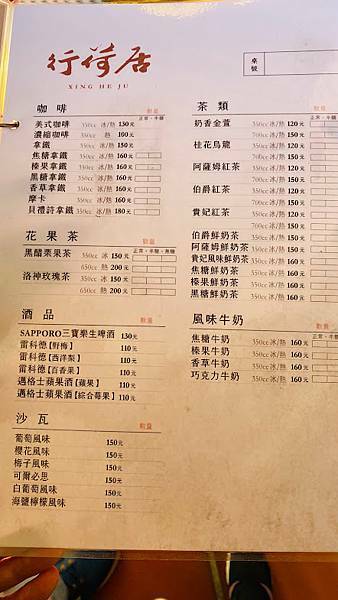 行荷居
XING HE JU
桌號
咖啡 數量
正常、半糖
美式咖啡 350cc 冰/熱 130元
濃縮咖啡 350cc 熱 100元
拿鐵 350cc 冰/熱 150元
焦糖拿鐵 350cc 冰/熱 160元
榛果拿鐵 350cc 冰/熱 160元
黑糖拿鐵 350cc 冰/熱 160元
香草拿鐵 350cc 冰/熱 160元
摩卡 350cc 冰/熱 160元
貝禮詩拿鐵 350cc 冰/熱 180元
花果茶 數量
正常、半糖、無糖
黑醋栗果茶 350cc 冰 150元
650cc 熱 200元
洛神玫瑰茶 350cc 冰 150元
650cc 熱 200元
酒品 數量
SAPPORO三寶樂生啤酒 130元
雷科德【野梅】 110元
雷科德【西洋梨】 110元
雷科德【百香果】 110元
邁格士蘋果酒【蘋果】 110元
邁格士蘋果酒【綜合莓果】 110元
沙瓦 數量
葡萄風味 150元
櫻花風味 150元
梅子風味 150元
可爾必思 150元
白葡萄風味 150元
海鹽檸檬風味 150元
茶類 數量
正常、半糖、無糖
奶香金萱 350cc 冰/熱 120元
700cc 冰/熱 150元
桂花烏龍 350cc 冰/熱 120元
700cc 冰/熱 150元
阿薩姆紅茶 350cc 冰/熱 120元
700cc 冰/熱 150元
伯爵紅茶 350cc 冰/熱 120元
700cc 冰/熱 150元
貴妃紅茶 350cc 冰/熱 120元
700cc 冰/熱 150元
伯爵鮮奶茶 350cc 冰/熱 150元
阿薩姆鮮奶茶 350cc 冰/熱 150元
貴妃風味鮮奶茶 350cc 冰/熱 160元
焦糖鮮奶茶 350cc 冰/熱 160元
榛果鮮奶茶 350cc 冰/熱 160元
黑糖鮮奶茶 350cc 冰/熱 160元
風味牛奶 數量
正常、半糖
焦糖牛奶 350cc 冰/熱 160元
榛果牛奶 350cc 冰/熱 160元
香草牛奶 350cc 冰/熱 160元
巧克力牛奶 350cc 冰/熱 160元